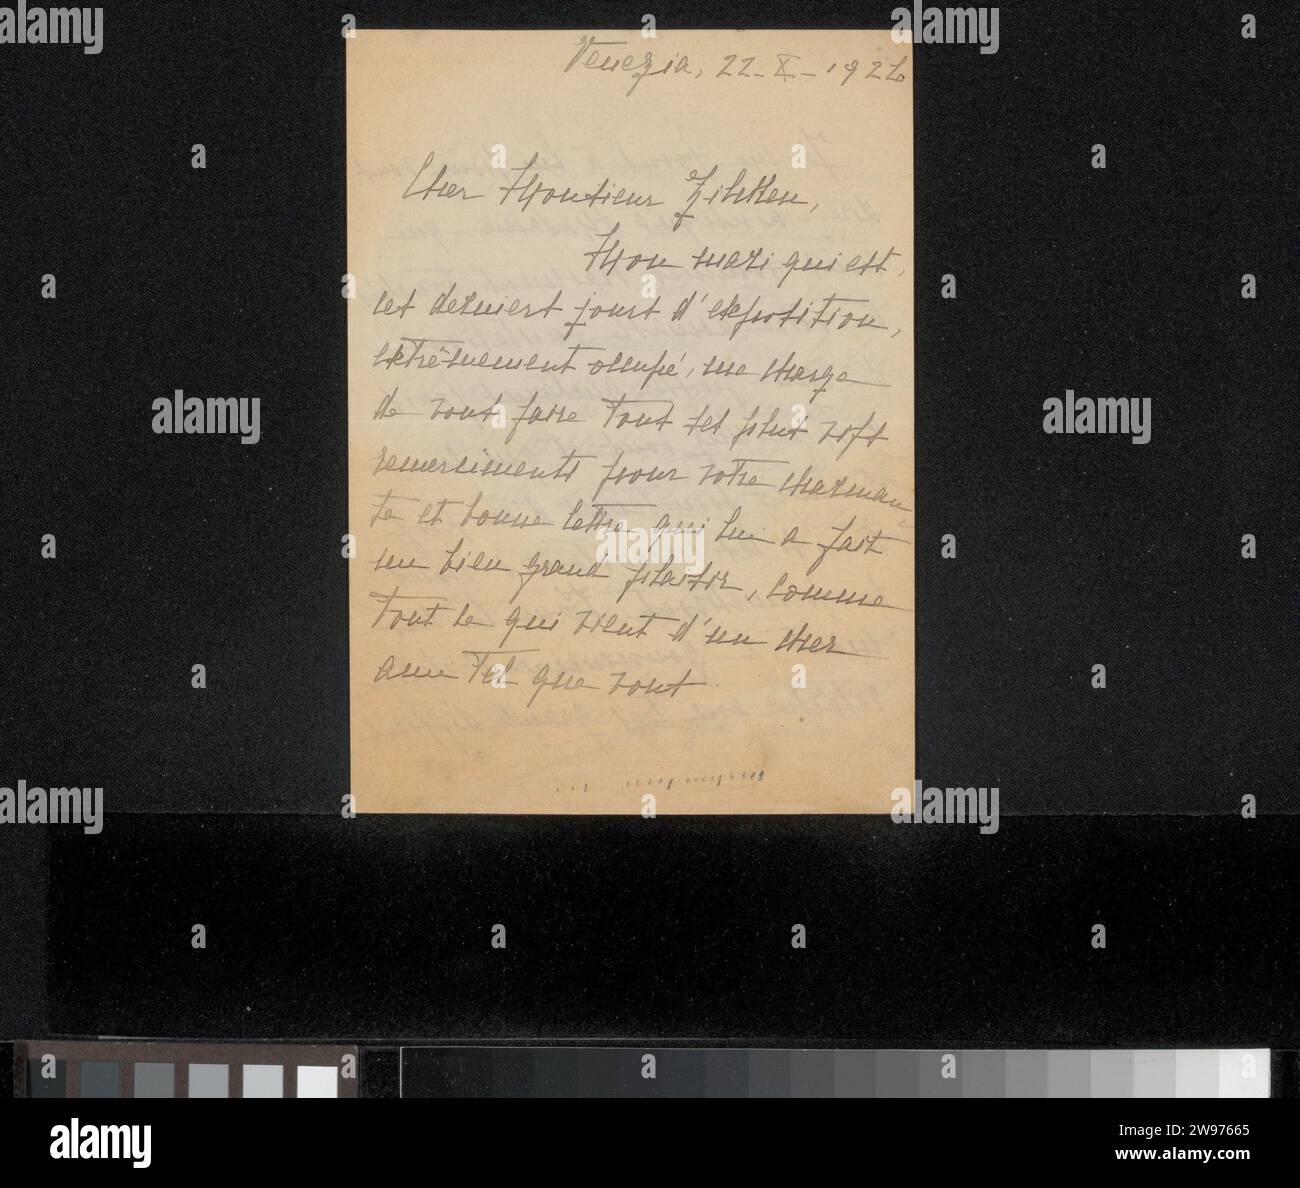 Venezia, 22-X-1926
Cher Monsieur Zilcken,
Mon mari qui est,
ces derniers jours d'exposition,
extrêmement occupé, me charge
de vous faire tout ses plus vifs
remerciments pour votre charman
te et bonne lettre qui lui a fait
un bien grand plaisir, comme
tout ce qui vient d'un cher
ami tel que vous
alamy
Image ID: 2W97665
www.alamy.com